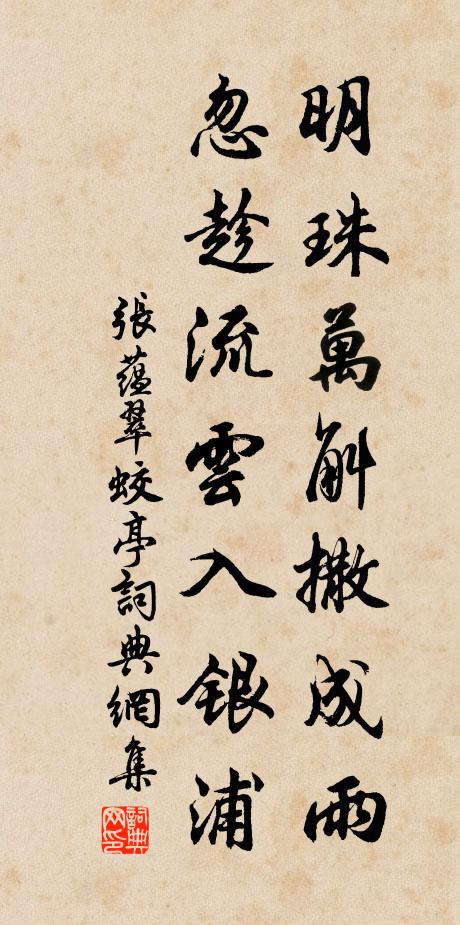 明珠萬斛撒成雨
忽趁流雲入銀浦
張蘊翠蛟亭詞典網集
詞典網印